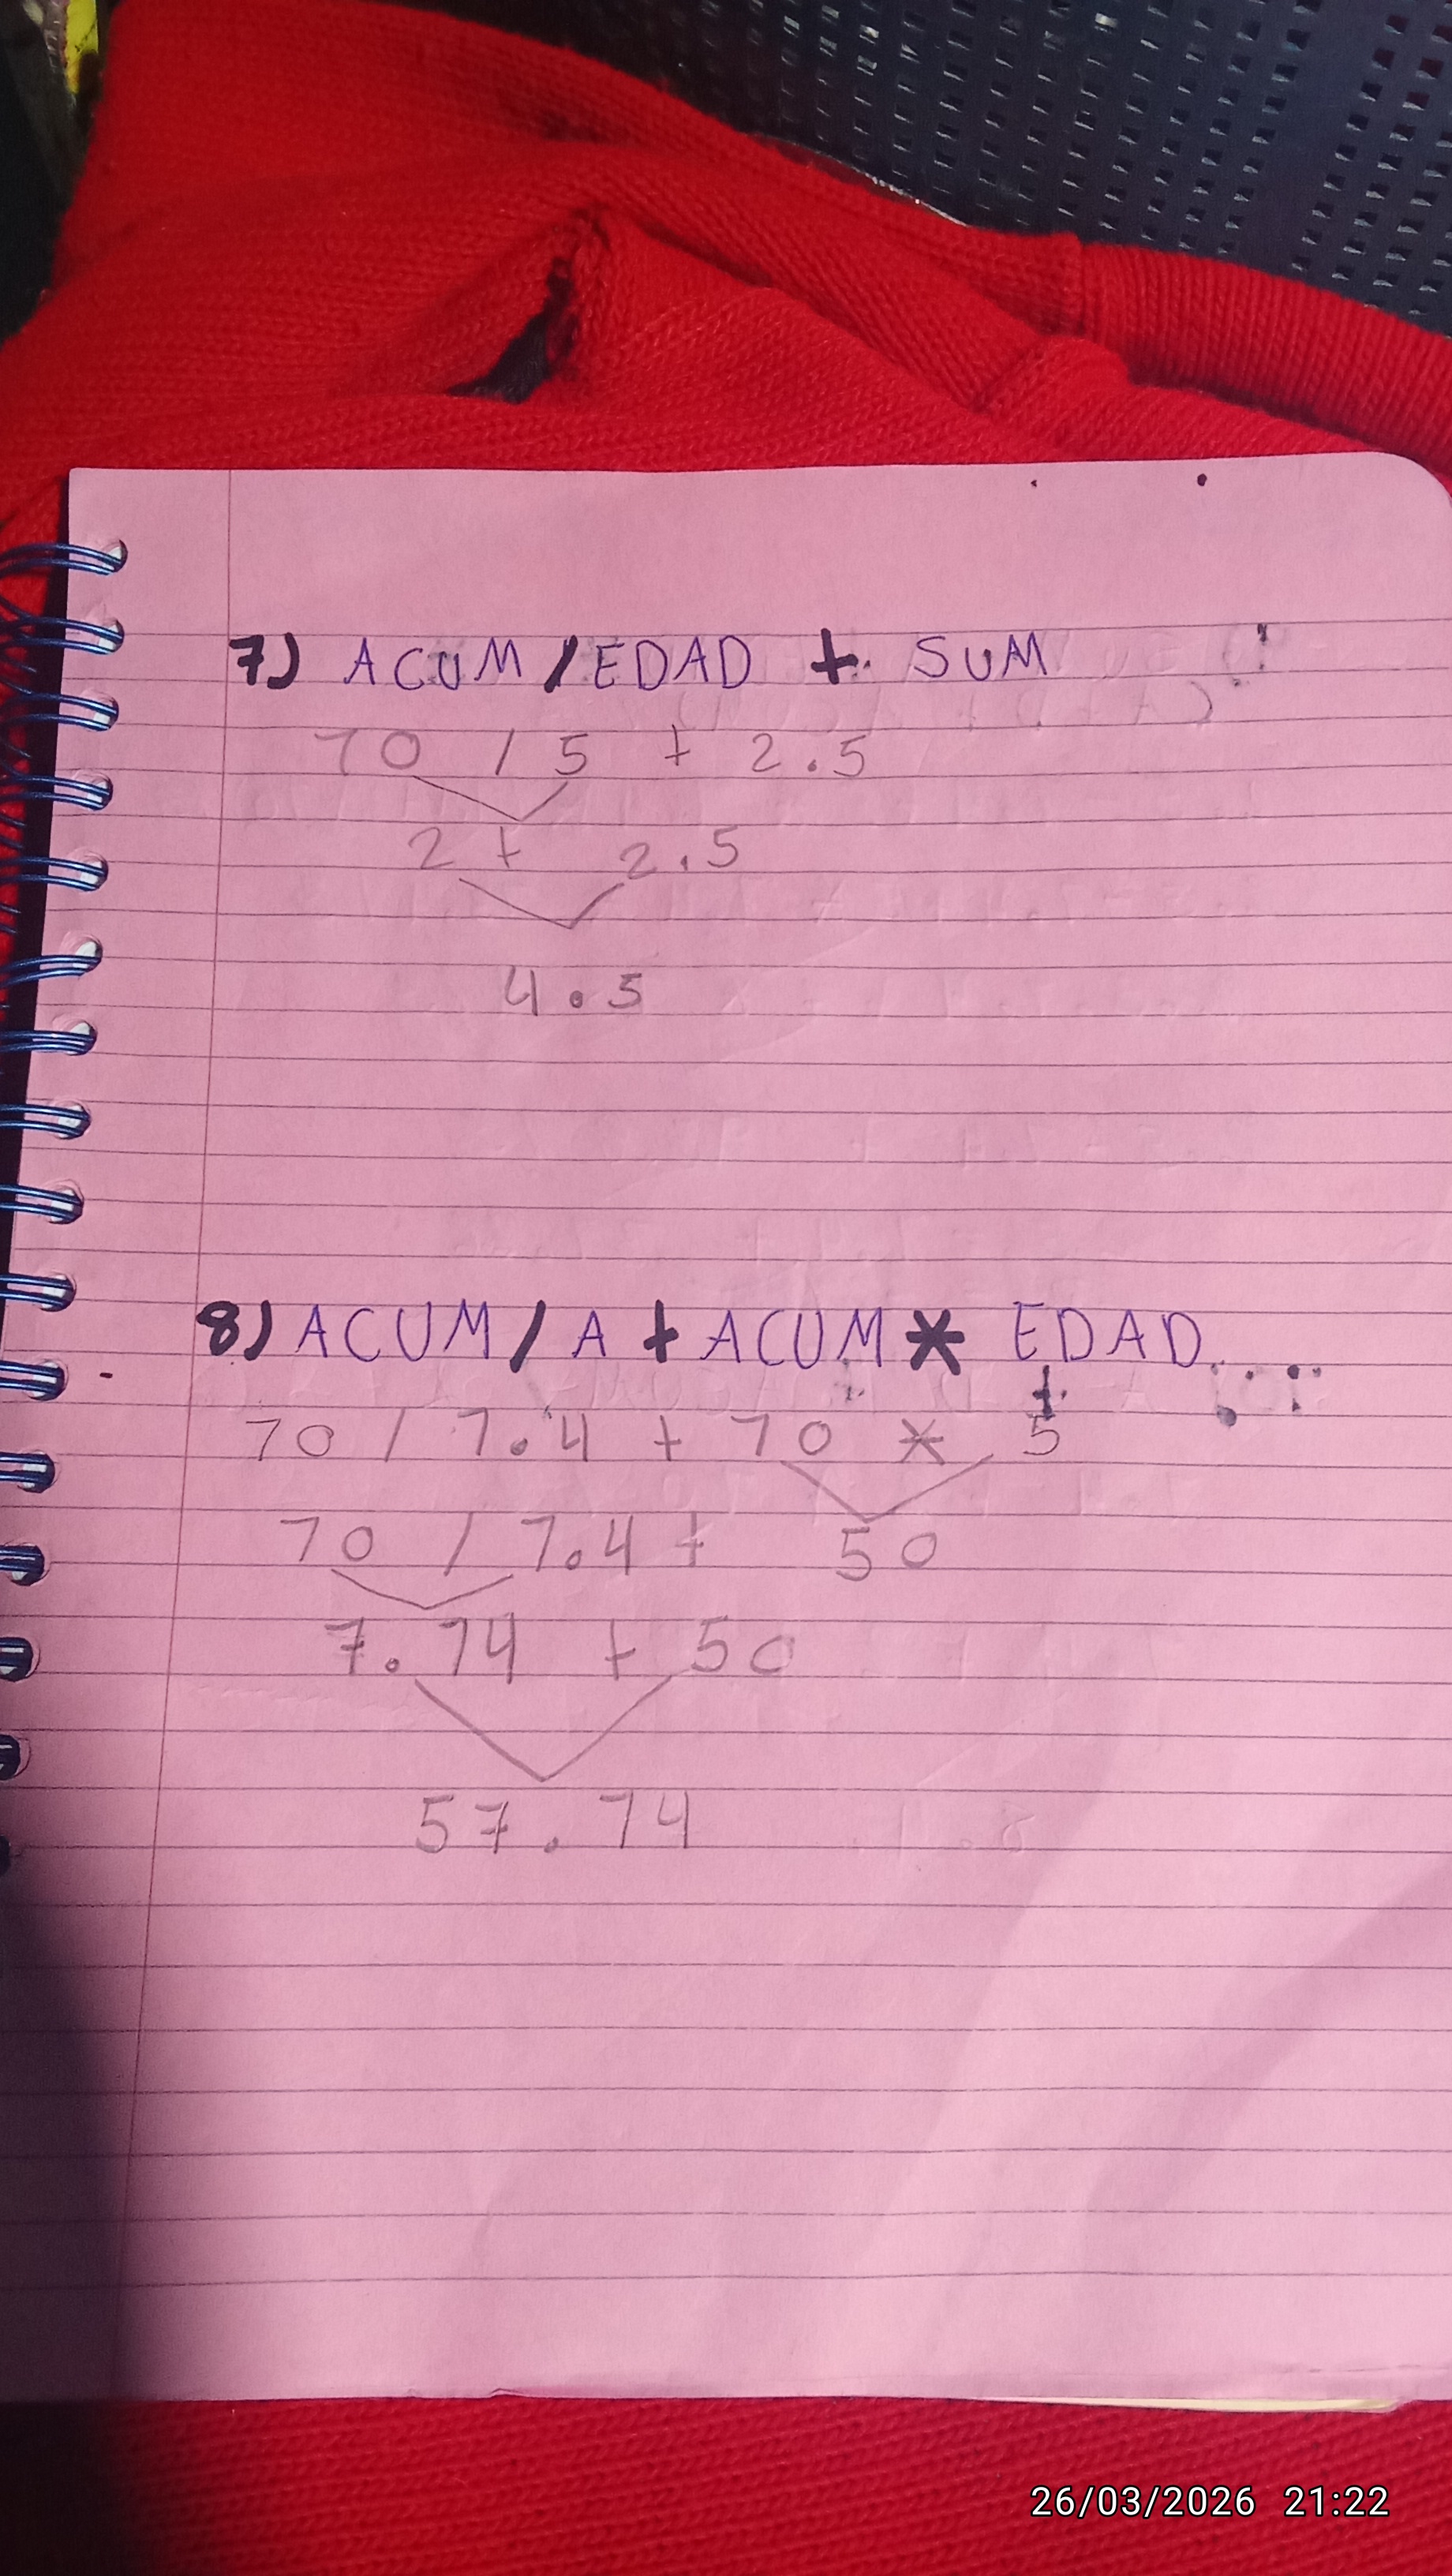 7) ACUM / EDAD + SUM
10 / 5 + 2.5
2 + 2.5
4.5
8) ACUM / A + ACUM * EDAD
10 / 1.4 + 10 * 5
10 / 1.4 + 50
7.14 + 50
57.14
26/03/2026 21:22